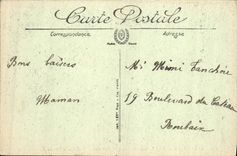 Carte Postale
Correspondance
Adresse
Bons baisers
Maman
Mr Mimi
19 Boulevard du Cateau
Roubaix